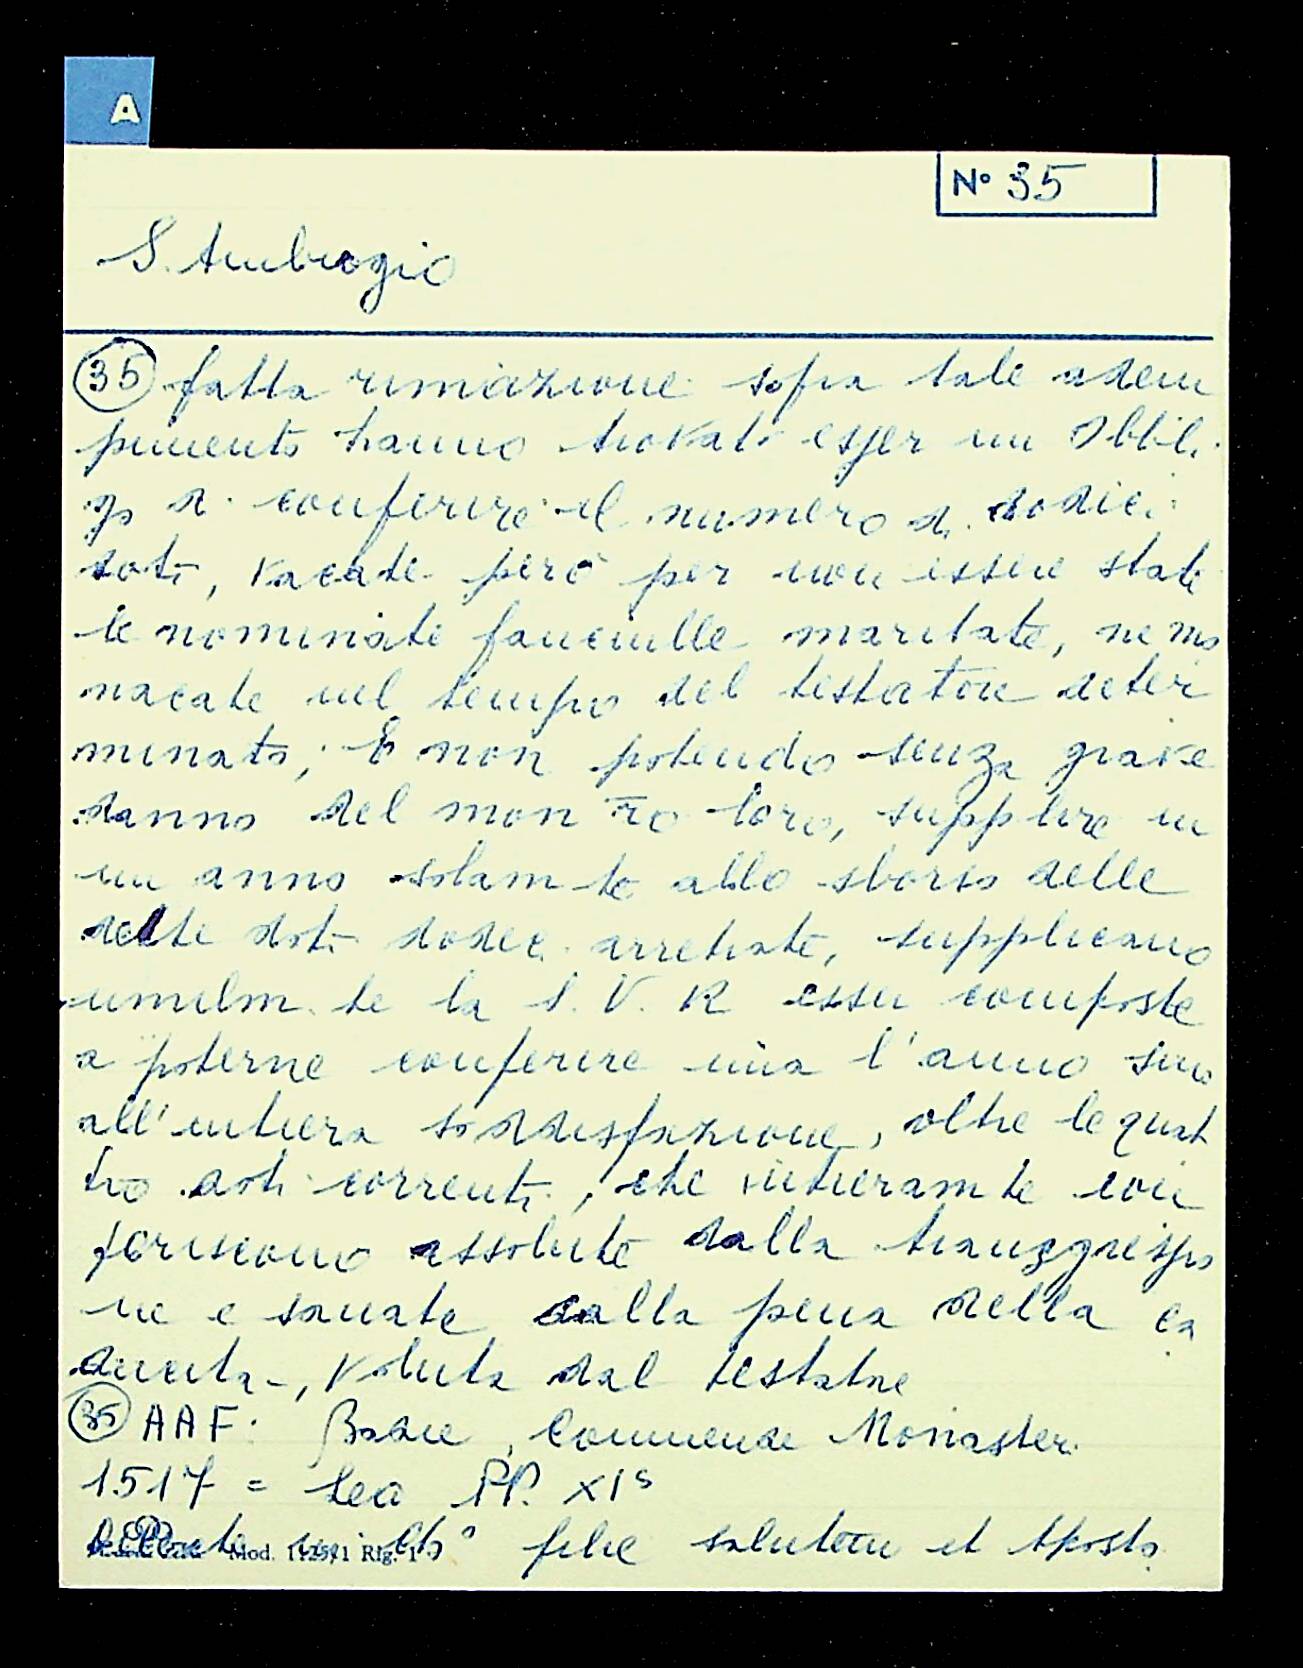 A
N° 35
S. Ambrogio
(35) fatta rimiazione sopra tale adem
pimento hanno trovato esser un Obbli
go di conferire il numero di dodici
doti, vacate però per non essere state
le nominate fanciulle maritate, ne mo
nacate nel tempo del testatore deter
minato; E non potendo senza grave
danno del mon ro loro, supplire in
un anno solam te allo sborso delle
dette doti dodec. arretrate, supplicano
umilm. te la S. V. R esser composte
a poterne conferire una l'anno sino
all'intiera soddisfazione, oltre le quat
tro doti correnti, che intieram te con
feriscono assolute dalla transgressio
ne e sanate dalla pena della ca
ducità, voluta dal testatore
(35) AAF: Badie, Commende Monaster.
1517 = Leo PP. XIs
Dilecte fili salutem et Aposto
Mod. 11251/1 Rig. 1